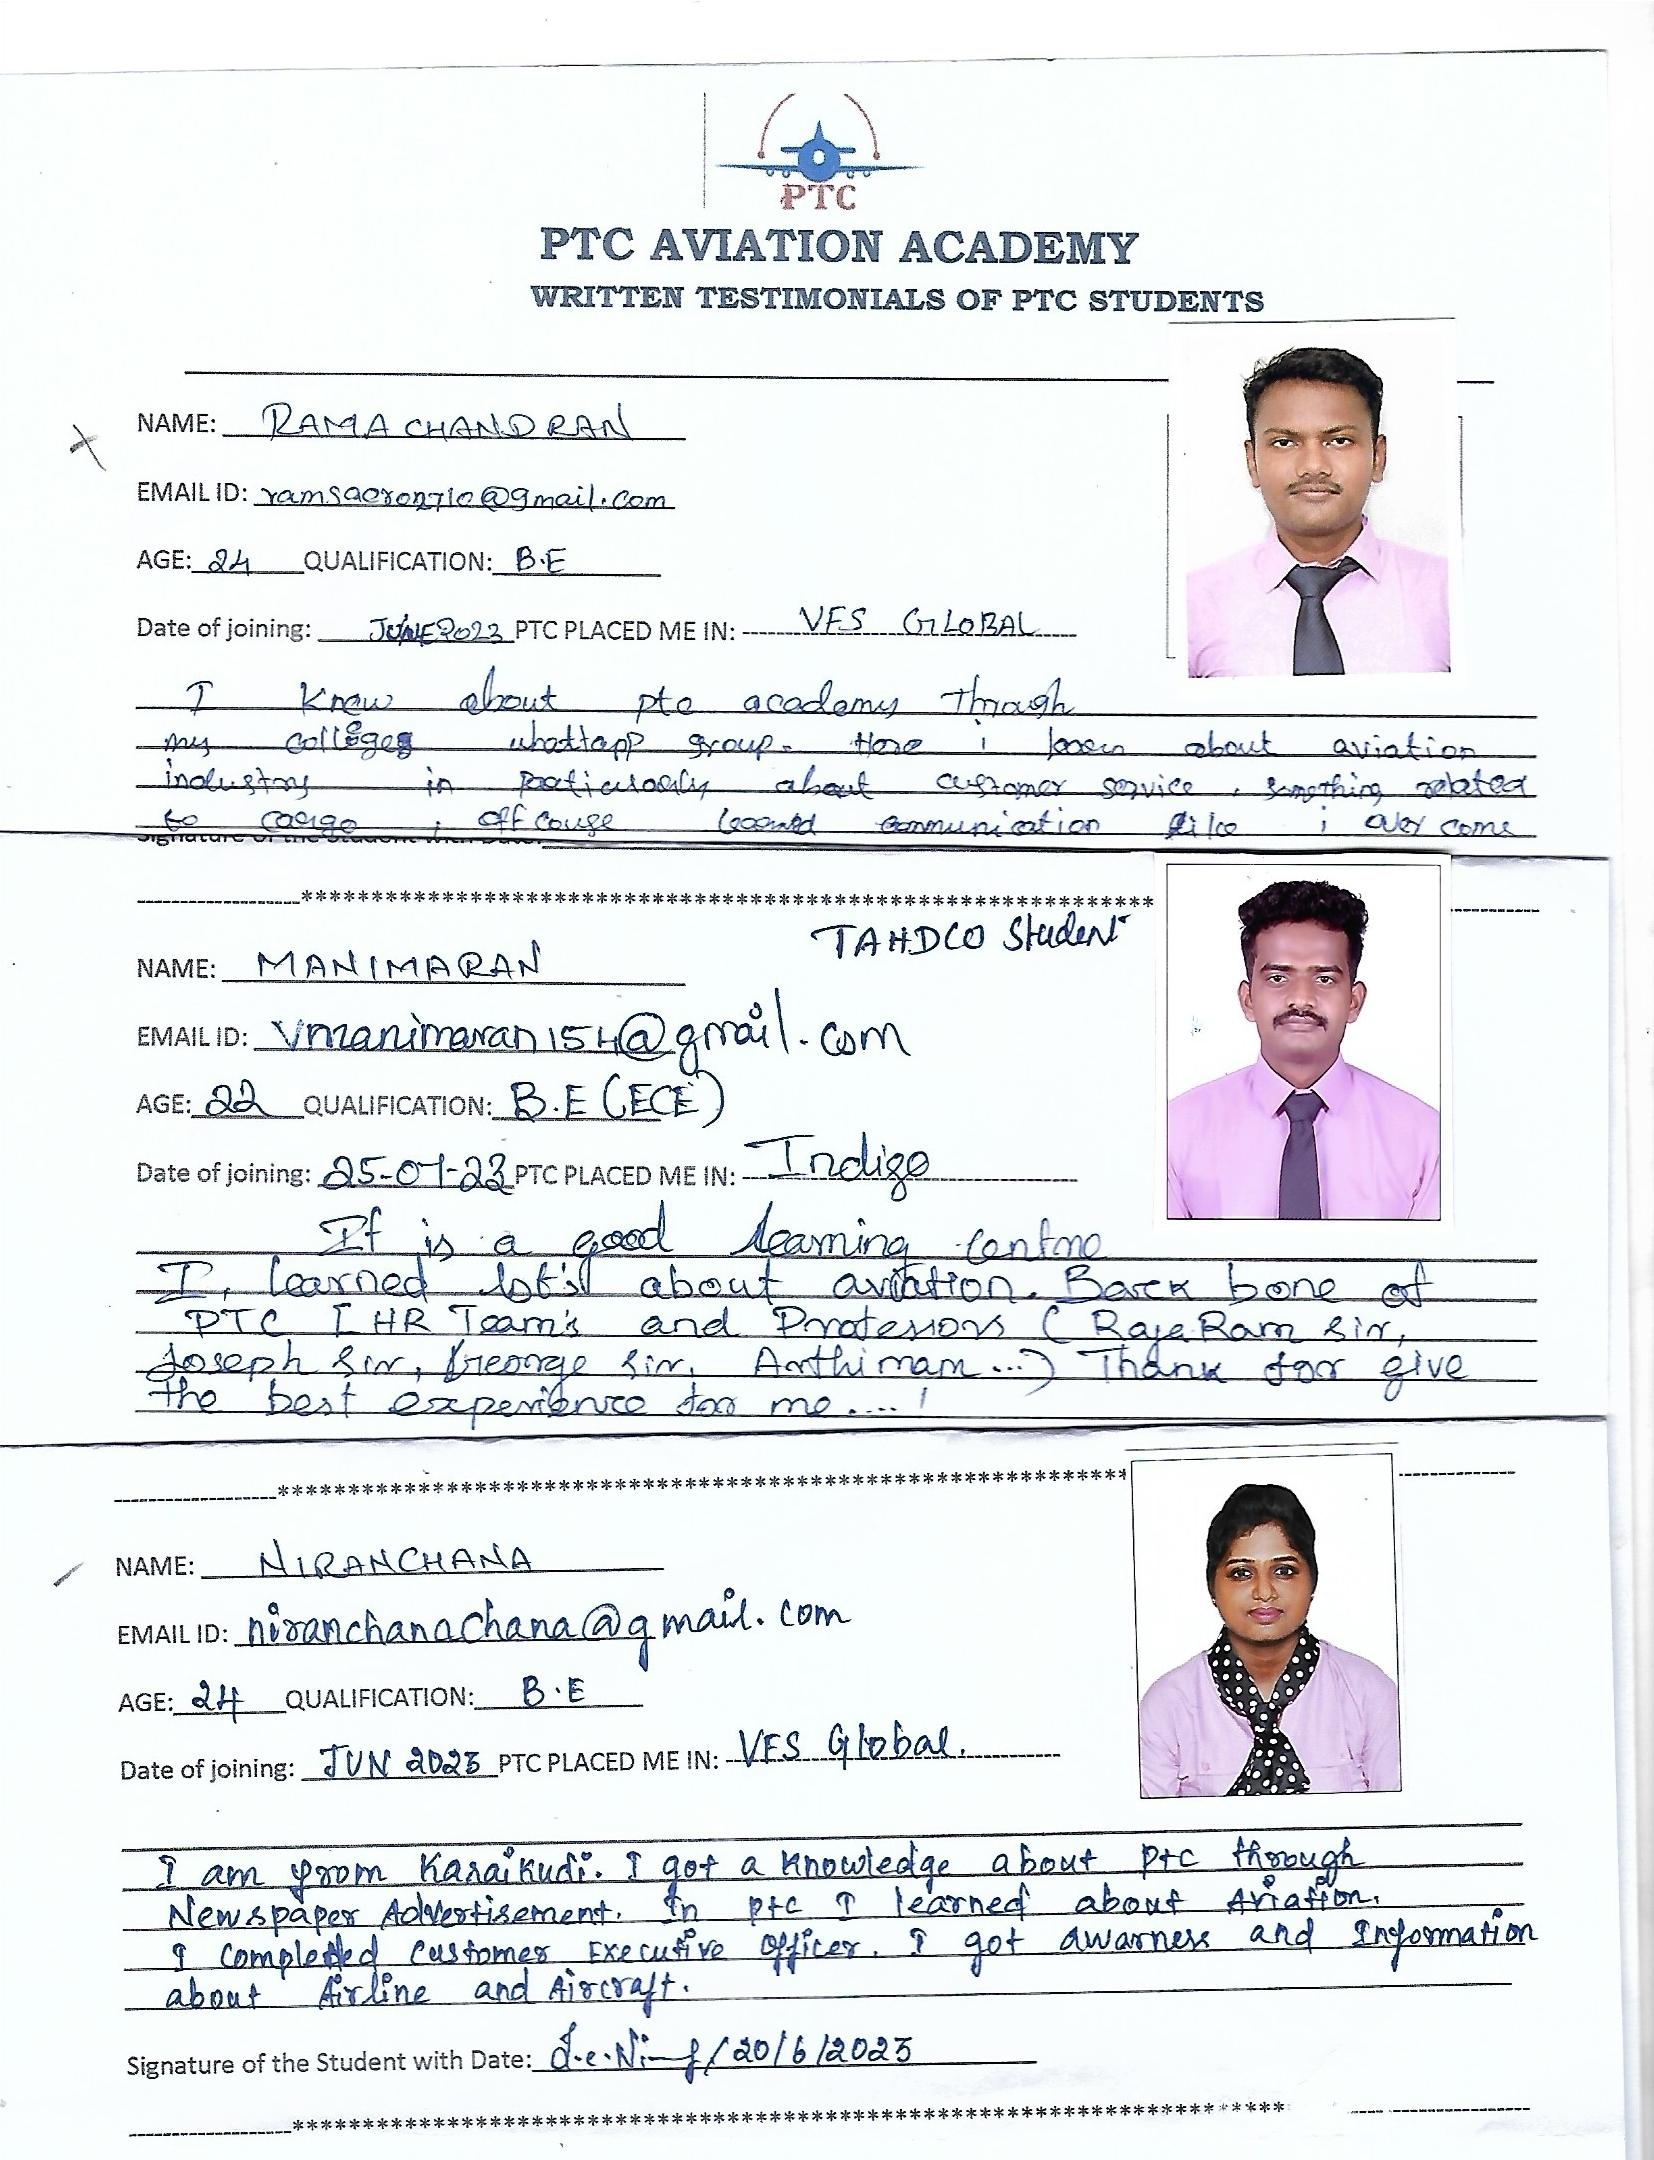 PTC
PTC AVIATION ACADEMY
WRITTEN TESTIMONIALS OF PTC STUDENTS
NAME: RAMACHANDRAN
EMAIL ID: @gmail.com
AGE: 24 QUALIFICATION: B.E
Date of joining: JUNE 2023 PTC PLACED ME IN: VFS GLOBAL
I Know about ptc academy Through
my colleges whattapp group. Here i learn about aviation
industry in particularly about customer service, something related
to cargo, off couse learned communication like i over come
Signature of the Student with Date:
********************************************************************
TAHDCO Student
NAME: MANIMARAN
EMAIL ID: vmanimaran154@gmail.com
AGE: 22 QUALIFICATION: B.E (ECE)
Date of joining: 25-07-23 PTC PLACED ME IN: Indigo
It is a good learning centre
I, learned lot's about aviation. Back bone of
PTC I HR Team's and Professors (RajaRam sir,
Joseph sir, George sir, Arthi mam...) Thank for give
the best experience for me....!
********************************************************************
NAME: NIRANCHANA
EMAIL ID: niranchanachana@gmail.com
AGE: 24 QUALIFICATION: B.E
Date of joining: JUN 2023 PTC PLACED ME IN: VFS Global.
I am from Karaikudi. I got a knowledge about ptc through
Newspaper Advertisement. In ptc I learned about Aviation.
I completed Customer Executive Officer. I got awarness and Information
about Airline and Aircraft.
Signature of the Student with Date: /20/6/2023
********************************************************************